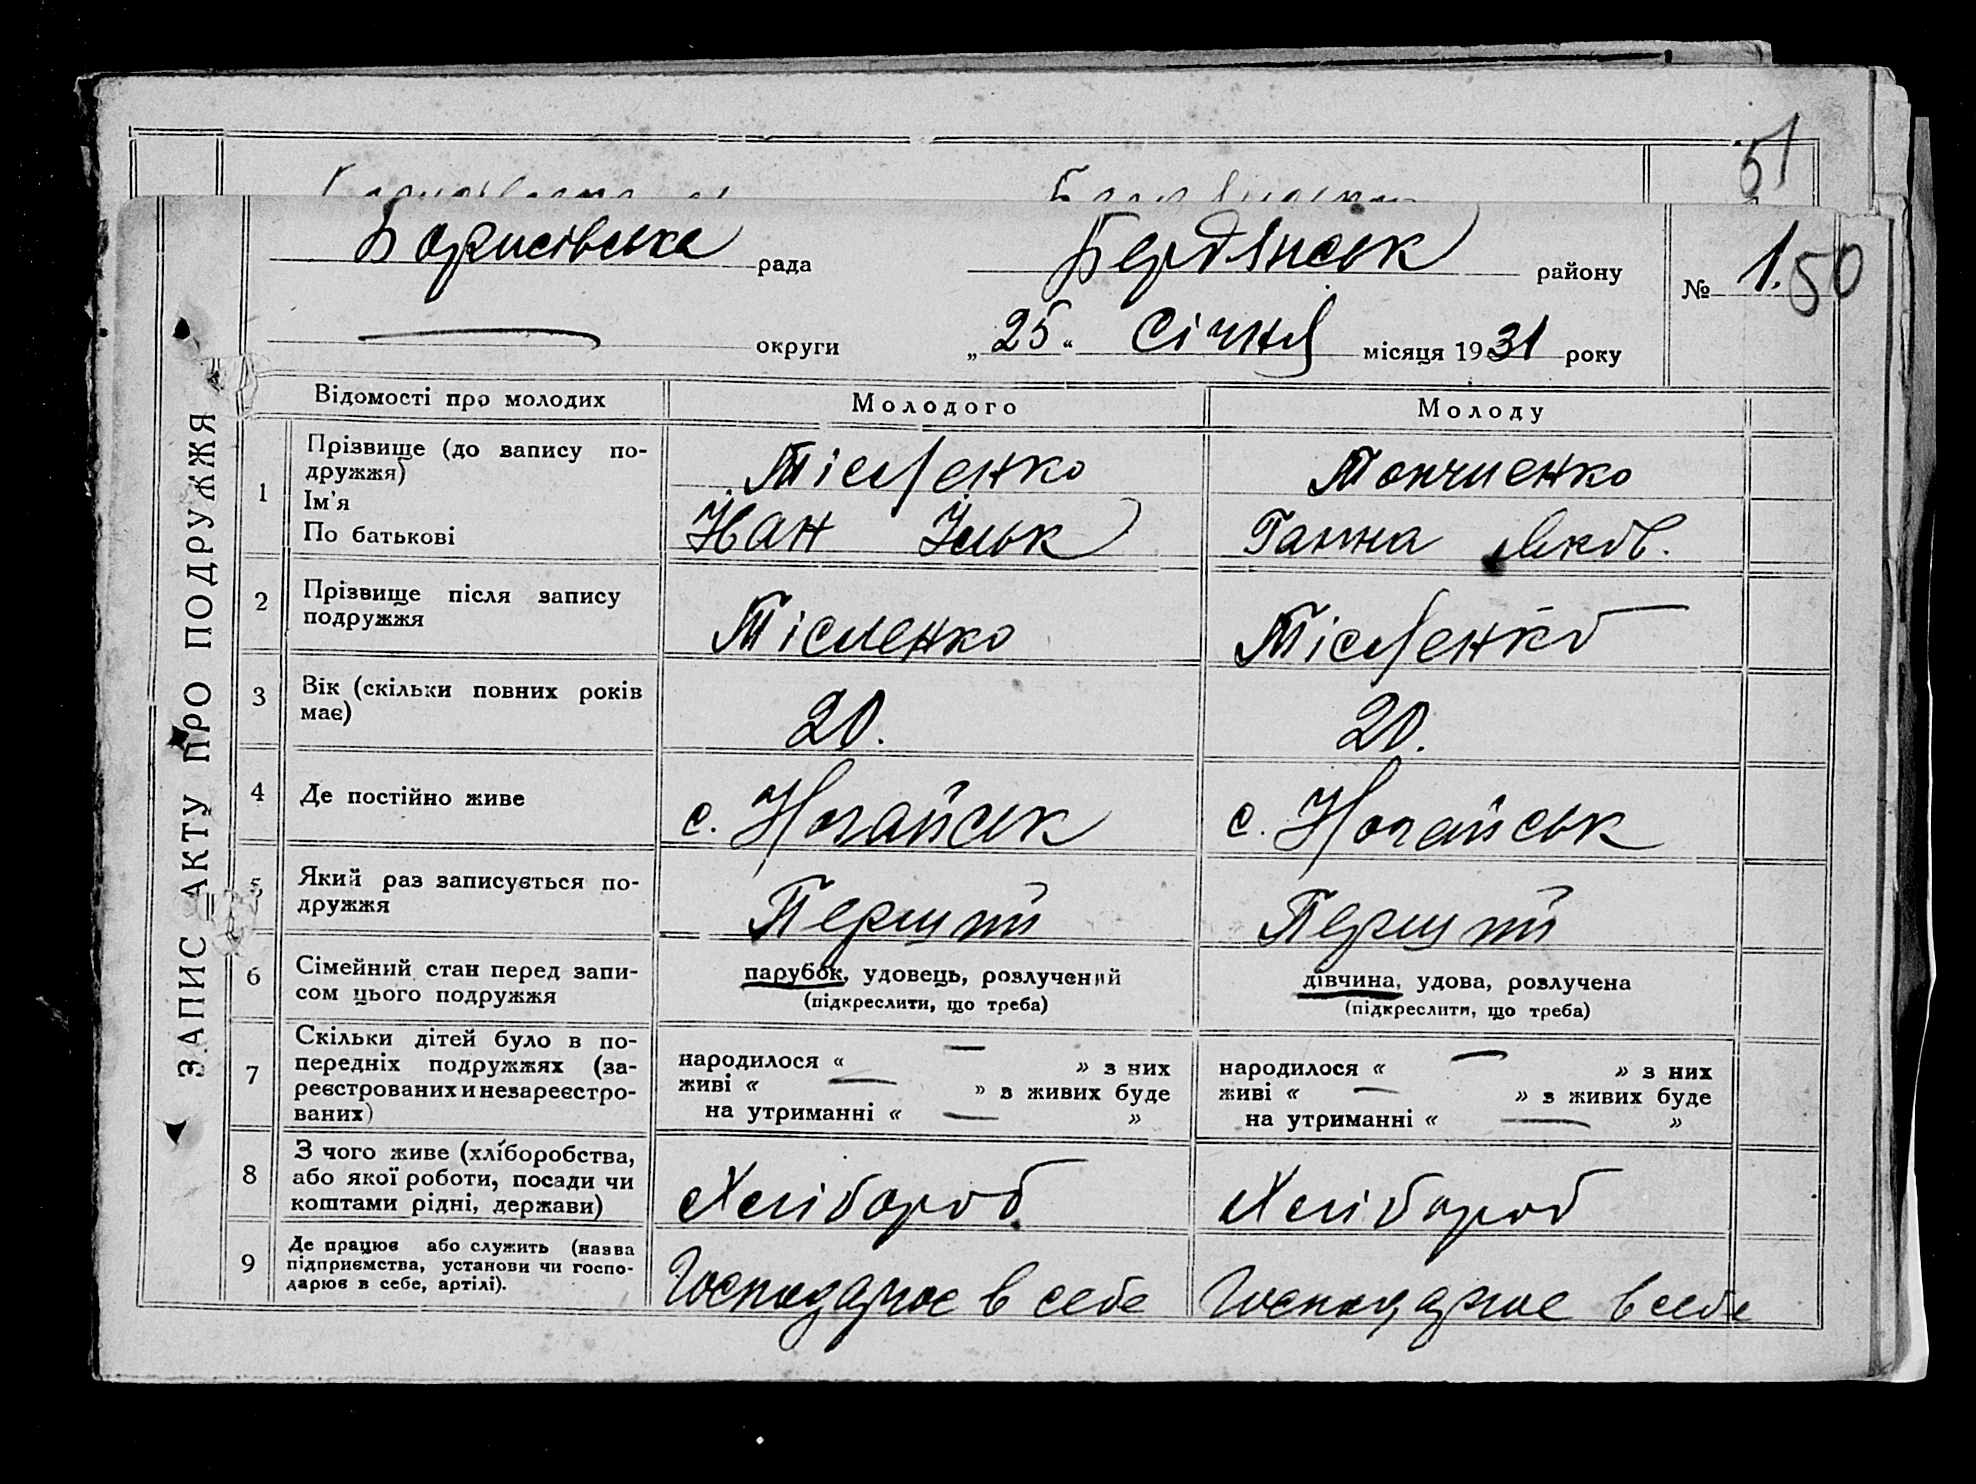 51
Борисівська рада
Бердянськ району
№ 1. 50
округи
„25“ Січня місяця 1931 року
ЗАПИС АКТУ ПРО ПОДРУЖЖЯ
Відомості про молодих
Молодого
Молоду
1
Прізвище (до запису по-
дружжя)
Ім'я
По батькові
Тісленко
Йван Ільк
Тончиенко
Ганна Яков.
2
Прізвище після запису
подружжя
Тісленко
Тісленко
3
Вік (скільки повних років
має)
20.
20.
4
Де постійно живе
с. Ногайськ
с. Ногайськ
5
Який раз записується по-
дружжя
Перший
Перший
6
Сімейний стан перед запи-
сом цього подружжя
парубок, удовець, розлучений
(підкреслити, що треба)
дівчина, удова, розлучена
(підкреслити, що треба)
7
Скільки дітей було в по-
передніх подружжях (за-
реєстрованих и незареєстро-
ваних)
народилося « — » з них
живі « — » з живих буде
на утриманні « — »
народилося « — » з них
живі « — » з живих буде
на утриманні « — »
8
З чого живе (хліборобства,
або якої роботи, посади чи
коштами рідні, держави)
Хлібороб
Хлібороб
9
Де працює або служить (назва
підприємства, установи чи госпо-
дарює в себе, артілі).
Господарює в себе
Господарює в себе